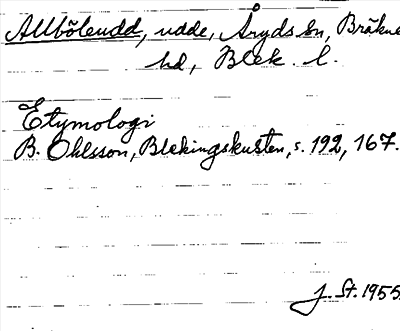 Allböleudd, udde, Åryds sn, Bräkne
hd, Blek. l.
Etymologi
B. Ohlsson, Blekingskusten, s. 192, 167.
J. St. 1955